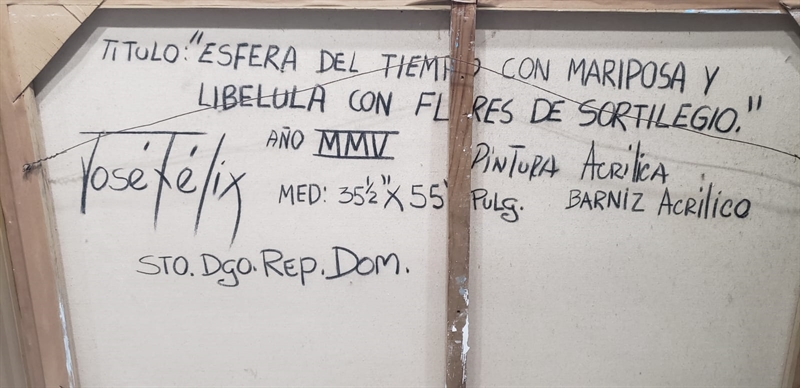 TITULO: "ESFERA DEL TIEMPO CON MARIPOSA Y
LIBELULA CON FLORES DE SORTILEGIO."
José Félix
AÑO MMV
PINTURA ACRÍLICA
MED: 35½" X 55 PULG.
BARNIZ ACRÍLICO
STO. DGO. REP. DOM.